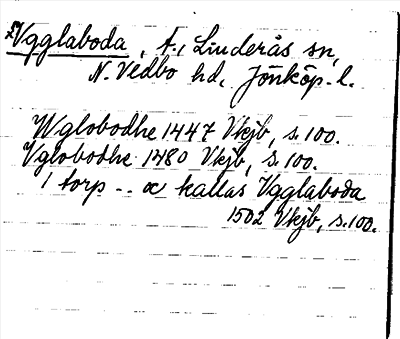 Vgglaboda, f. i Linderås sn,
N. Vedbo hd, Jönköp. l.
Wglobodhe 1447 Vkjb, s. 100.
Vglobodhe 1480 Vkjb, s. 100.
1 torp -- oc kallas Vgglaboda
1502 Vkjb, s. 100.